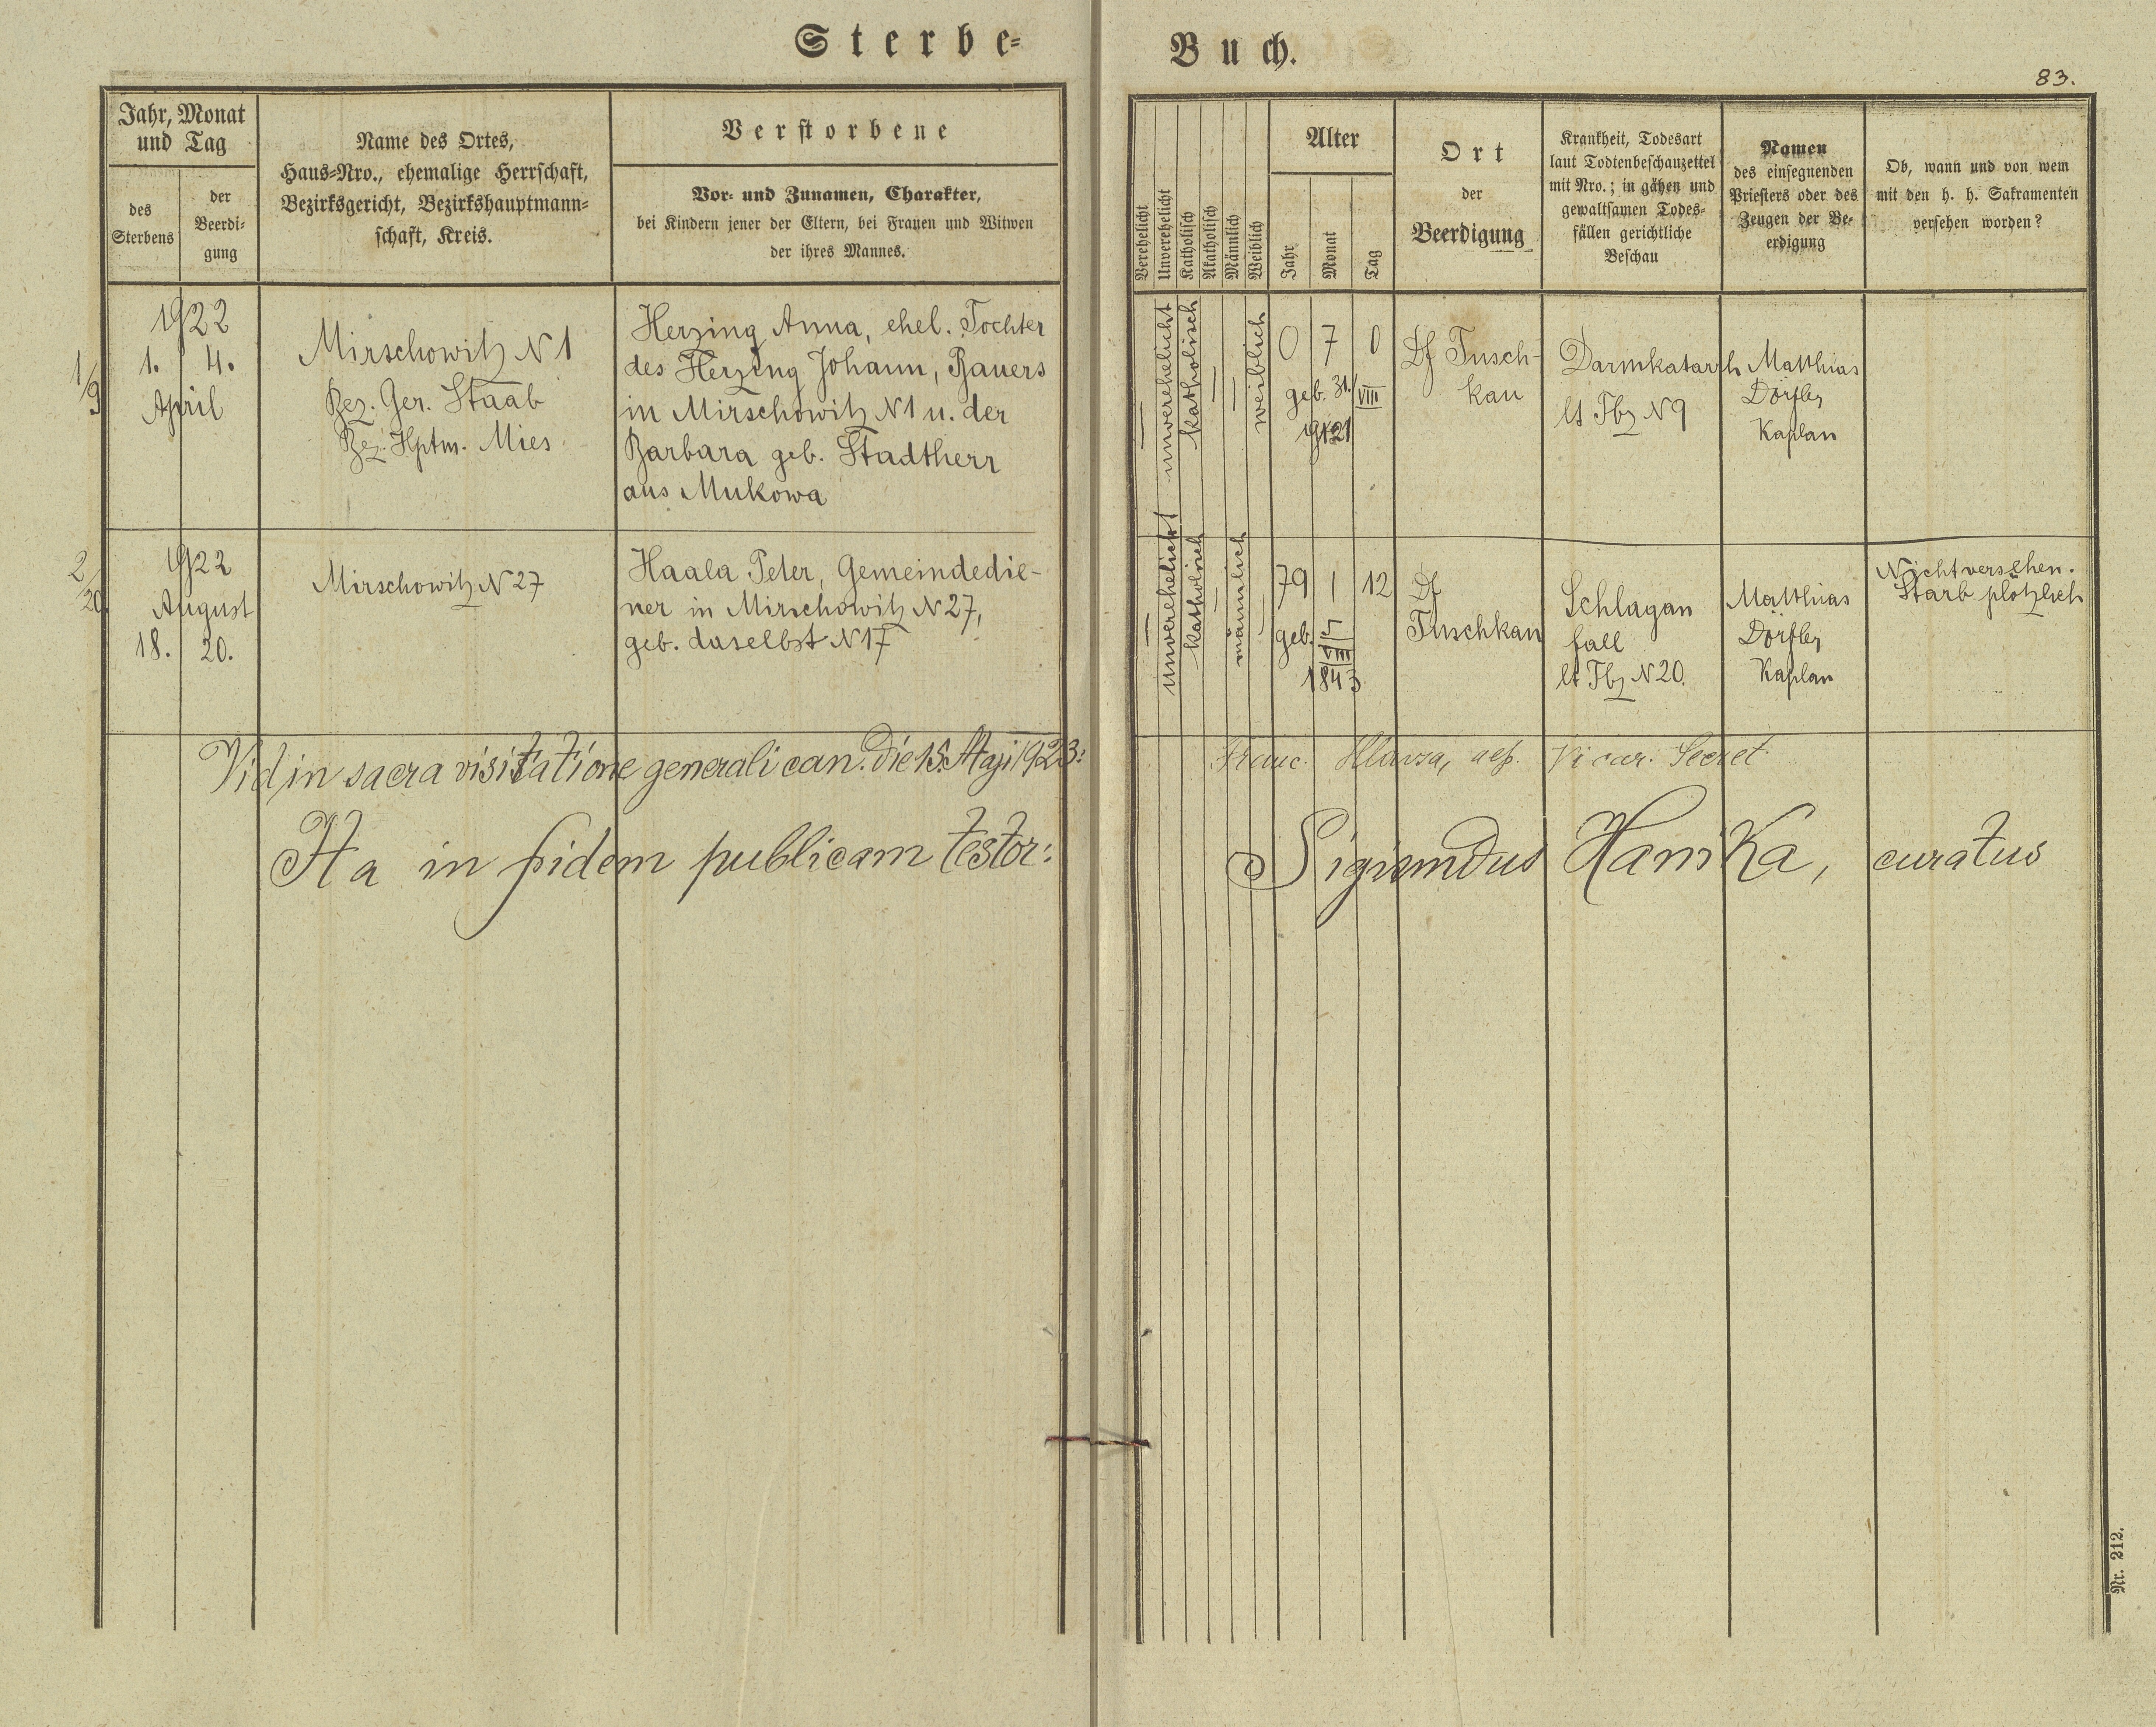 Sterbe-
Buch.
83.
Jahr, Monat
und Tag
des
Sterbens
der
Beerdi-
gung
Name des Ortes,
Haus-Nro., ehemalige Herrschaft,
Bezirksgericht, Bezirkshauptmann-
schaft, Kreis.
Verstorbene
Vor- und Zunamen, Charakter,
bei Kindern jener der Eltern, bei Frauen und Witwen
der ihres Mannes.
Verehelicht
Unverehelicht
Katholisch
Akatholisch
Männlich
Weiblich
Alter
Jahr
Monat
Tag
Ort
der
Beerdigung
Krankheit, Todesart
laut Todtenbeschauzettel
mit Nro.; in gähen und
gewaltsamen Todes-
fällen gerichtliche
Beschau
Namen
des einsegnenden
Priesters oder des
Zeugen der Be-
erdigung
Ob, wann und von wem
mit den h. h. Sakramenten
versehen worden?
1/9
1922
1. 4.
April
Mirschowitz N 1
Bez. Ger. Staab
Bez. Hptm. Mies
Herzing Anna, ehel. Tochter
des Herzing Johann, Bauers
in Mirschowitz N 1 u. der
Barbara geb. Stadtherr
aus Mukowa
unverehelicht
katholisch
weiblich
0 7 0
geb. 31./VIII
1921
Df Tusch-
kau
Darmkatarrh
lt Tbz N 9
Matthias
Dörfler
Kaplan
2/20
1922
August
18. 20.
Mirschowitz N 27
Haala Peter, Gemeindedie-
ner in Mirschowitz N 27,
geb. daselbst N 17
unverehelicht
katholisch
männlich
79 1 12
geb. 5/VIII
1843
Df
Tuschkau
Schlagan
fall
lt Tbz N 20.
Matthias
Dörfler
Kaplan
Nicht versehen.
Starb plötzlich
Vid in sacra visitatione generali can. die 15. Maji 1923:
Franc. Vicar. Secret
Ita in fidem publicam testor:
Sigismundus Hanika, curatus
Nr. 212.